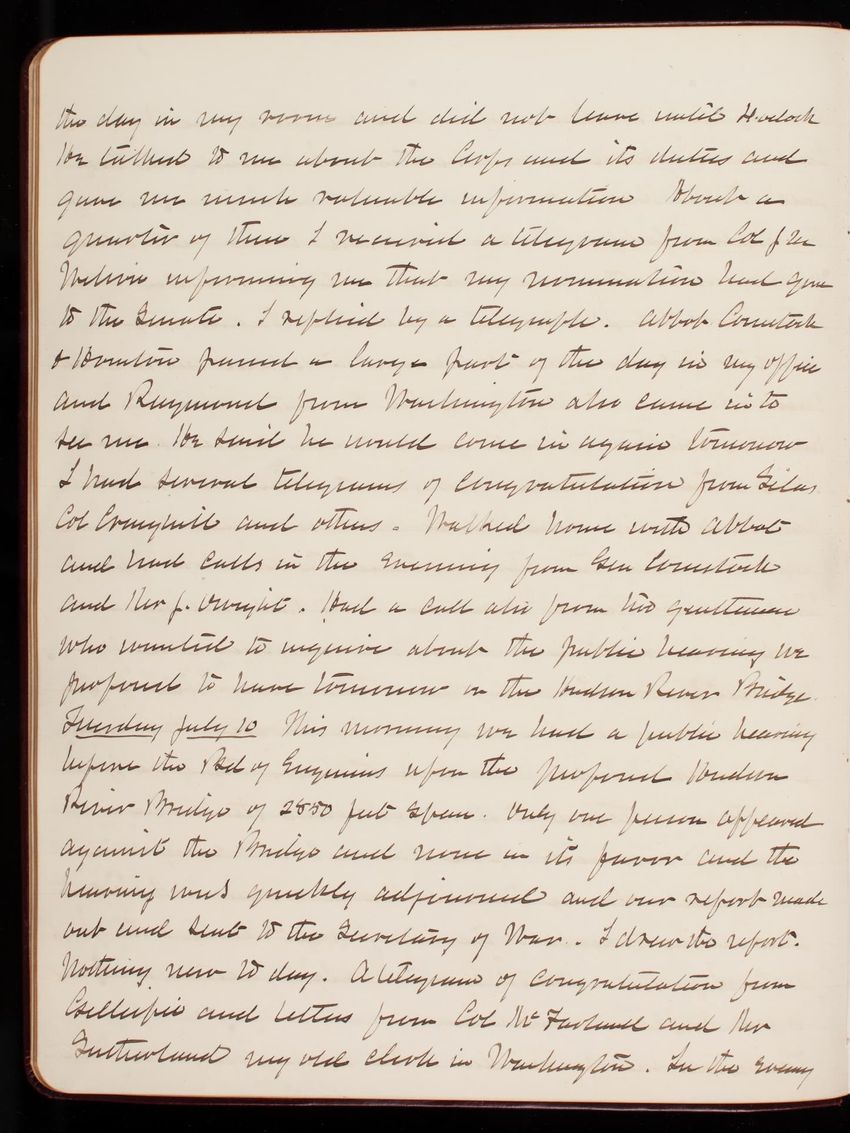 the day in my room and did not leave until 4 oclock
He talked to me about the Corps and its duties and
gave me much valuable information About a
quarter of three I received a telegram from Col J M
Wilson informing me that my nomination had gone
to the Senate. I replied by a telegraph. Abbot Comstock
& Houston passed a large part of the day in my office
and Raymond from Washington also came in to
see me. He said he would come in again tomorrow
I had several telegrams of congratulation from Silas
Col Craighill and others. Walked home with Abbot
and had calls in the evening from Gen Comstock
and Mr J. Dwight. Had a call also from two gentlemen
who wanted to inquire about the public hearing we
proposed to have tomorrow on the Hudson River Bridge.
Tuesday July 10 This morning we had a public hearing
before the Bd of Engineers upon the proposed Hudson
River Bridge of 2850 feet span. Only one person appeared
against the Bridge and none in its favor and the
hearing was quickly adjourned and our report made
out and sent to the Secretary of War. I drew the report.
Nothing new to day. A telegram of congratulation from
Gillespie and letters from Col McFarland and Mr
Sutherland my old clerk in Washington. In the eveng